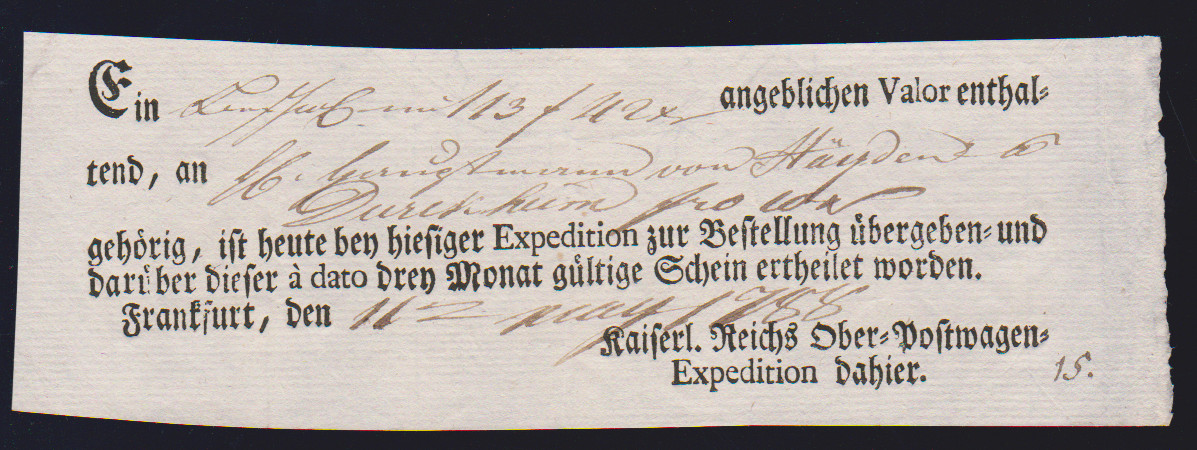 Ein 113 f 42 xr angeblichen Valor enthal=
tend, an H. Hauptmann von Häyden a
Dureckheim fro
gehörig, ist heute bey hiesiger Expedition zur Bestellung übergeben= und
darüber dieser à dato drey Monat gültige Schein ertheilet worden.
Frankfurt, den 11 may 1788
Kaiserl. Reichs Ober=Postwagen=
Expedition dahier. 15.